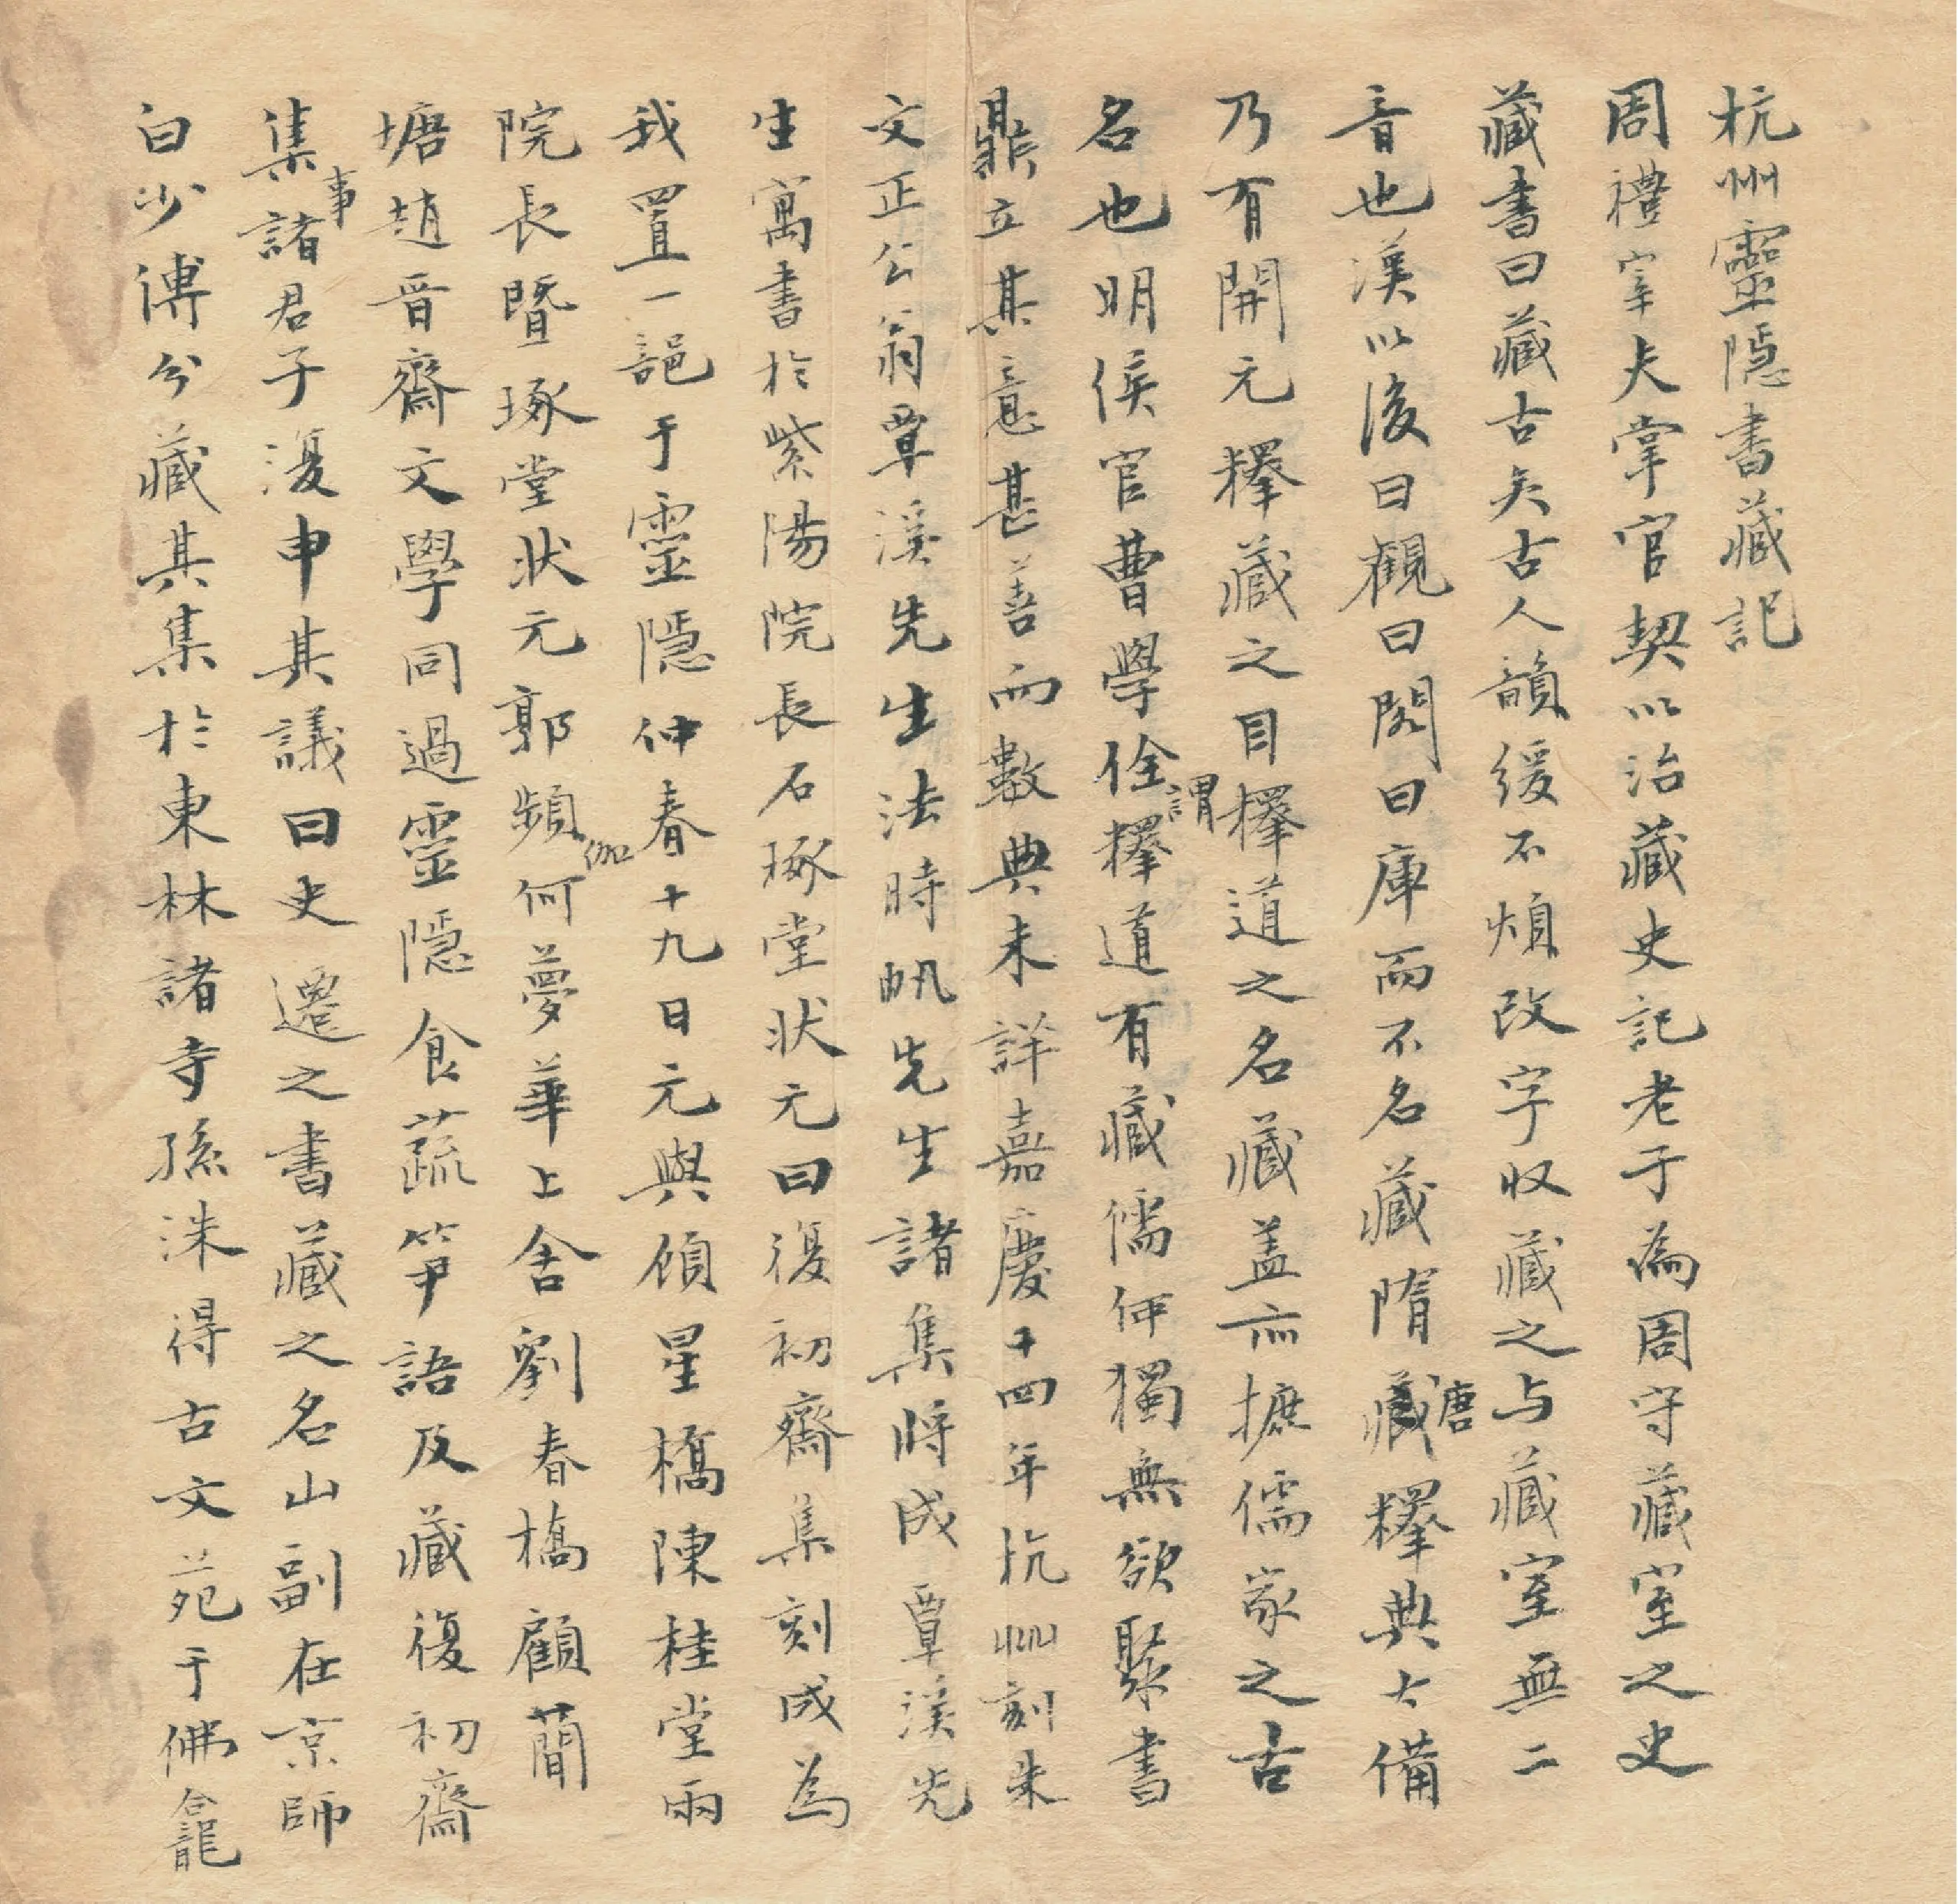 杭州靈隱書藏記
周禮宰夫掌官契以治藏史記老子為周守藏室之史
藏書曰藏古矣古人韻緩不煩改字収藏之与藏室無二
音也漢以後曰觀曰閣曰庫而不名藏隋唐藏釋典大備
乃有開元釋藏之目釋道之名藏盖亦摭儒家之古
名也明侯官曹學佺謂釋道有藏儒何獨無欲聚書
鼎立其意甚善而數典未詳嘉慶十四年杭州刻朱
文正公翁覃溪先生法時帆先生諸集將成覃溪先
生寓書於紫陽院長石琢堂状元曰復初齋集刻成為
我置一部于靈隱仲春十九日元與顔星橋陳桂堂兩
院長暨琢堂状元郭頻伽何夢華上舍劉春橋顧蕳
塘趙晉齋文學同過靈隱食蔬筍語及藏復初齋
集事諸君子復申其議曰史遷之書藏之名山副在京師
白少傅分藏其集於東林諸寺孫洙得古文苑于佛龕